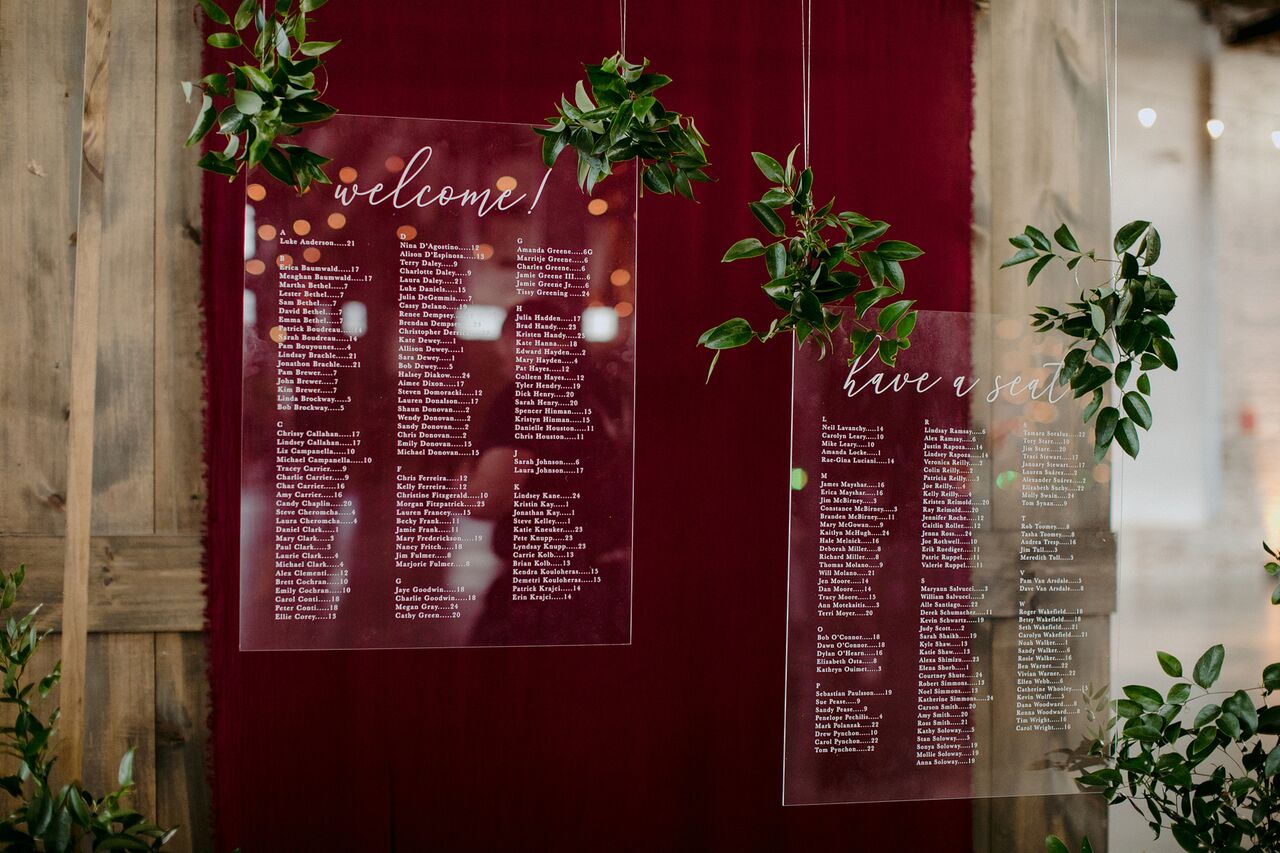 welcome!
A
Luke Anderson.....21
B
Erica Baumwald.....17
Meaghan Baumwald.....17
Martha Bethel.....7
Lester Bethel.....7
Sam Bethel.....7
David Bethel.....7
Emma Bethel.....7
Patrick Boudreau.....14
Sarah Boudreau.....14
Pam Bouyounes.....4
Lindsay Brachle.....21
Jonathon Brachle.....21
Pam Brewer.....7
John Brewer.....7
Kim Brewer.....7
Linda Brockway.....5
Bob Brockway.....5
C
Chrissy Callahan.....17
Lindsey Callahan.....17
Liz Campanella.....10
Michael Campanella.....10
Tracey Carrier.....9
Charlie Carrier.....9
Chaz Carrier.....16
Amy Carrier.....16
Candy Chaplin.....20
Steve Cheromcha.....4
Laura Cheromcha.....4
Daniel Clark.....1
Mary Clark.....3
Paul Clark.....3
Laurie Clark.....4
Michael Clark.....4
Alex Clementi.....12
Brett Cochran.....10
Emily Cochran.....10
Carol Conti.....18
Peter Conti.....18
Ellie Corey.....15
D
Nina D'Agostino.....12
Alison D'Espinosa.....13
Terry Daley.....9
Charlotte Daley.....9
Laura Daley.....21
Luke Daniels.....15
Julia DeGemmis.....7
Cassy Delano.....19
Renee Dempsey
Brendan Dempsey
Christopher
Kate Dewey.....1
Allison Dewey.....1
Sara Dewey.....1
Bob Dewey.....5
Halsey Diakow.....24
Aimee Dixon.....17
Steven Domoracki.....12
Lauren Donalson.....17
Shaun Donovan.....2
Wendy Donovan.....2
Sandy Donovan.....2
Chris Donovan.....2
Emily Donovan.....15
Michael Donovan.....15
F
Chris Ferreira.....12
Kelly Ferreira.....12
Christine Fitzgerald.....10
Morgan Fitzpatrick.....23
Lauren Francey.....15
Becky Frank.....11
Jamie Frank.....11
Mary Frederickson.....19
Nancy Fritch.....18
Jim Fulmer.....8
Marjorie Fulmer.....8
G
Jaye Goodwin.....18
Charlie Goodwin.....18
Megan Gray.....24
Cathy Green.....20
G
Amanda Greene.....6G
Marritje Greene.....6
Charles Greene.....6
Jamie Greene III.....6
Jamie Greene Jr.....6
Tissy Greening.....24
H
Julia Hadden.....17
Brad Handy.....23
Kristen Handy.....23
Kate Hanna.....18
Edward Hayden.....2
Mary Hayden.....4
Pat Hayes.....12
Colleen Hayes.....12
Tyler Hendry.....19
Dick Henry.....20
Sarah Henry.....20
Spencer Hinman.....15
Kristyn Hinman.....15
Danielle Houston.....11
Chris Houston.....11
J
Sarah Johnson.....6
Laura Johnson.....17
K
Lindsey Kane.....24
Kristin Kay.....1
Jonathan Kay.....1
Steve Kelley.....1
Katie Kneuker.....23
Pete Knupp.....23
Lyndsay Knupp.....23
Carrie Kolb.....13
Brian Kolb.....13
Kendra Kouloheras.....15
Demetri Kouloheras.....15
Patrick Krajci.....14
Erin Krajci.....14
have a seat
L
Neil Lavanchy.....14
Carolyn Leary.....10
Mike Leary.....10
Amanda Locke.....1
Rae-Gina Luciani.....14
M
James Mayshar.....16
Erica Mayshar.....16
Jim McBirney.....3
Constance McBirney.....3
Branden McBirney.....11
Mary McGowan.....9
Kaitlyn McHugh.....24
Hale Melnick.....16
Deborah Miller.....8
Richard Miller.....8
Thomas Molano.....9
Will Molano.....21
Jen Moore.....14
Dan Moore.....14
Tracy Moore.....15
Ann Motekaitis.....3
Terri Moyer.....20
O
Bob O'Connor.....18
Dawn O'Connor.....18
Dylan O'Hearn.....16
Elisabeth Osta.....8
Kathryn Ouimet.....3
P
Sebastian Paulsson.....19
Sue Pease.....9
Sandy Pease.....9
Penelope Pechilis.....4
Mark Polanzak.....22
Drew Pynchon.....10
Carol Pynchon.....22
Tom Pynchon.....22
R
Lindsay Ramsay.....6
Alex Ramsay.....6
Justin Raposa.....14
Lindsey Raposa.....14
Veronica Reilly.....2
Colin Reilly.....2
Patricia Reilly.....3
Joe Reilly.....4
Kelly Reilly.....4
Kristen Reimold.....20
Ray Reimold.....20
Jennifer Roche.....12
Caitlin Roller.....12
Jenna Ross.....24
Joe Rothwell.....10
Erik Ruediger.....11
Patric Ruppel.....11
Valerie Ruppel.....11
S
Maryann Salvucci.....3
William Salvucci.....3
Alle Santiago.....22
Derek Schumacher.....11
Kevin Schwartz.....19
Judy Scott.....2
Sarah Shaikh.....19
Kyle Shaw.....13
Katie Shaw.....13
Alexa Shimizu.....23
Elena Shorb.....1
Courtney Shute.....24
Robert Simmons.....13
Noel Simmons.....13
Katherine Simmons.....24
Carson Smith.....20
Amy Smith.....20
Ross Smith.....21
Kathy Soloway.....5
Stan Soloway.....5
Sonya Soloway.....19
Mollie Soloway.....19
Anna Soloway.....19
Tory Starr.....10
Jim Starr.....20
Traci Stewart.....17
January Stewart.....17
Lauren Suárez.....2
Alexander Suárez.....12
Elizabeth Suchy.....22
Molly Swain.....24
Tom Synan.....
T
Rob Toomey.....8
Tasha Toomey.....8
Andrea Tresp.....16
Jim Tull.....5
Meredith Tull.....5
V
Pam Van Arsdale.....5
Dave Van Arsdale.....8
W
Roger Wakefield.....18
Betsy Wakefield.....18
Seth Wakefield.....21
Carolyn Wakefield.....21
Noah Walker.....1
Sandy Walker.....16
Rosie Walker.....16
Ben Warner.....22
Vivian Warner.....22
Ellen Webb.....6
Catherine Whooley.....15
Kevin Wolff.....5
Dana Woodward.....8
Ronna Woodward.....8
Tim Wright.....16
Carol Wright.....16